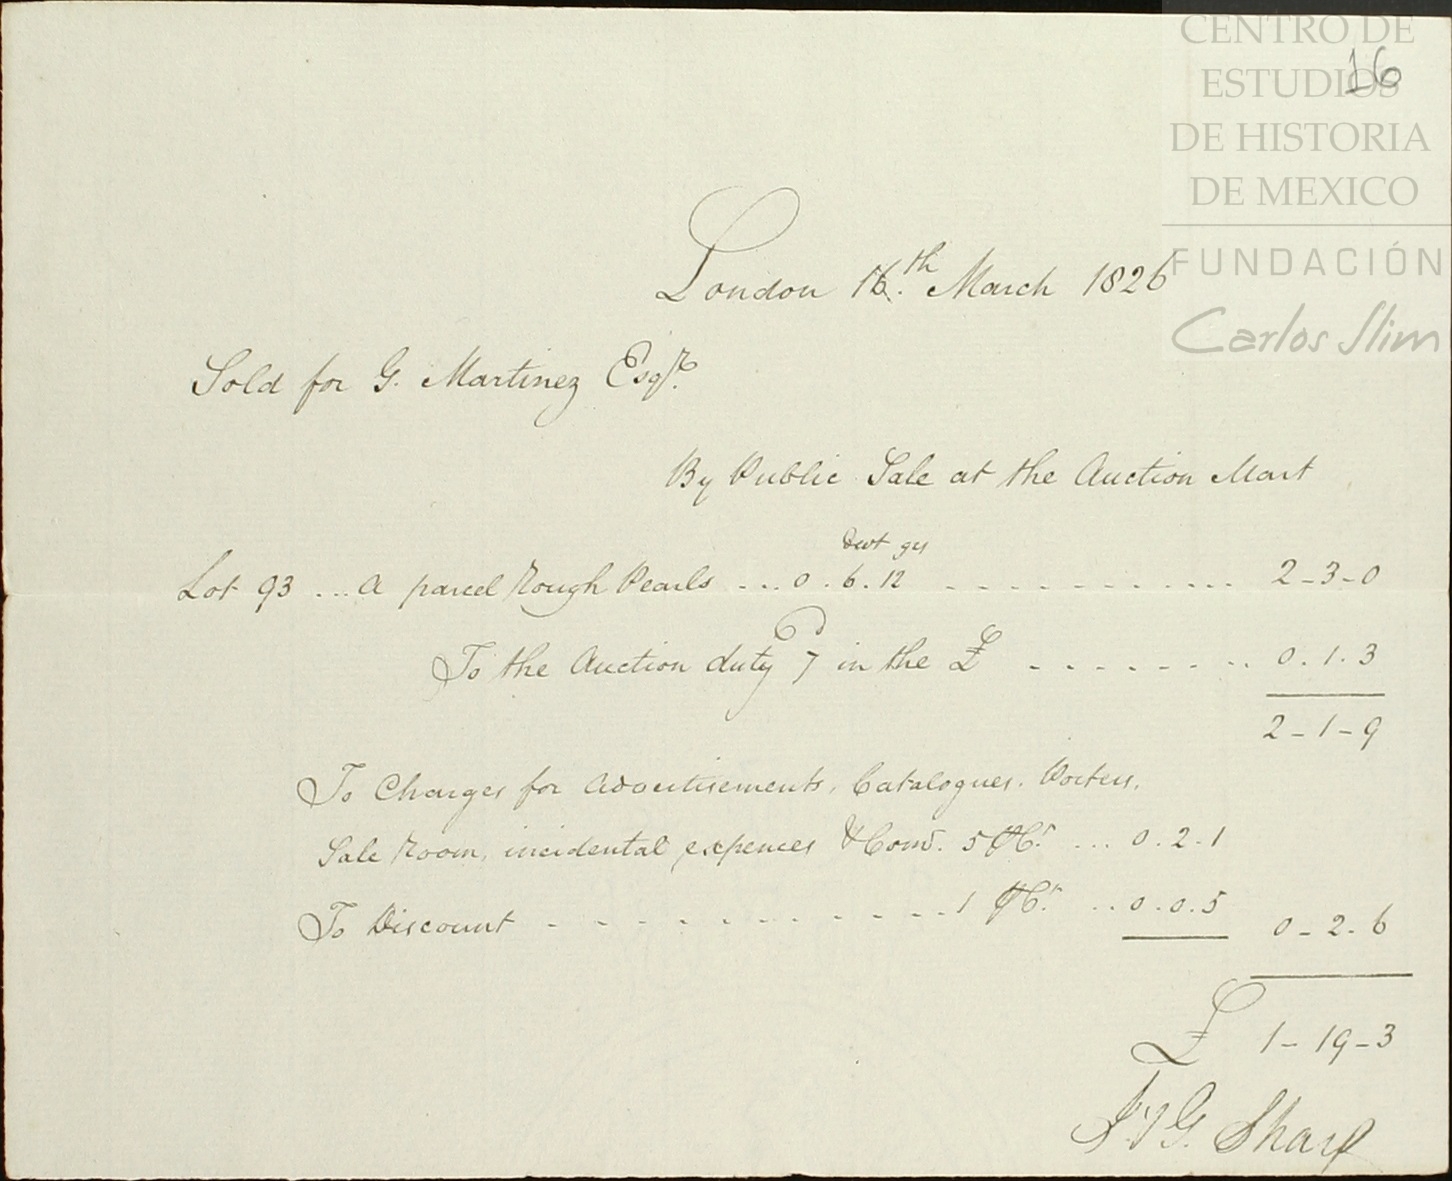 CENTRO DE
ESTUDIOS
DE HISTORIA
DE MEXICO
FUNDACIÓN
Carlos Slim
16
London 16.th March 1826
Sold for G. Martinez Esqr.
By Public Sale at the Auction Mart
dwt grs
Lot 93 ... A parcel Rough Pearls ... 0 . 6 . 12 - - - - - - - - - - - - 2 - 3 - 0
To the Auction duty 7d in the £ - - - - - - - .. 0 . 1 . 3
2 - 1 - 9
To Charges for Advertisements, Catalogues. Porters,
Sale Room, incidental expences & Comn. 5 P Ct. ... 0 . 2 . 1
To Discount - - - - - - - - - - - - 1 P Ct. .. 0 . 0 . 5 0 - 2 - 6
£ 1 - 19 - 3
G. Sharp